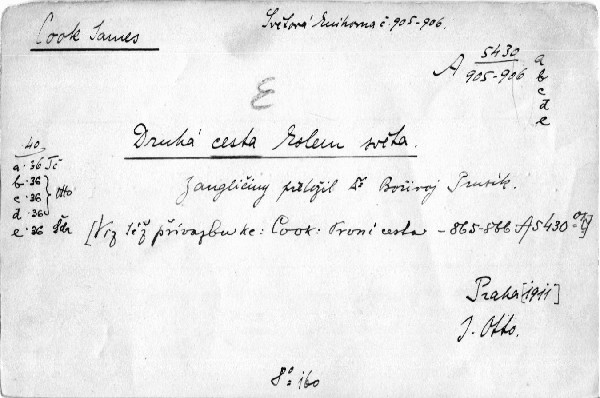 Světová knihovna č. 905-906.
Cook James
A 5430
905-906
a
b
c
d
e
E
Druhá cesta kolem světa.
40
a · 36 Tč
b · 36
c · 36 Otto
d · 36
e · 36 Šda
Z angličiny přeložil Dr Bořivoj Prusík.
[Viz též přívazbu ke: Cook: První cesta - 865-866 A 5430
Praha [1911]
J. Otto.
8° 160